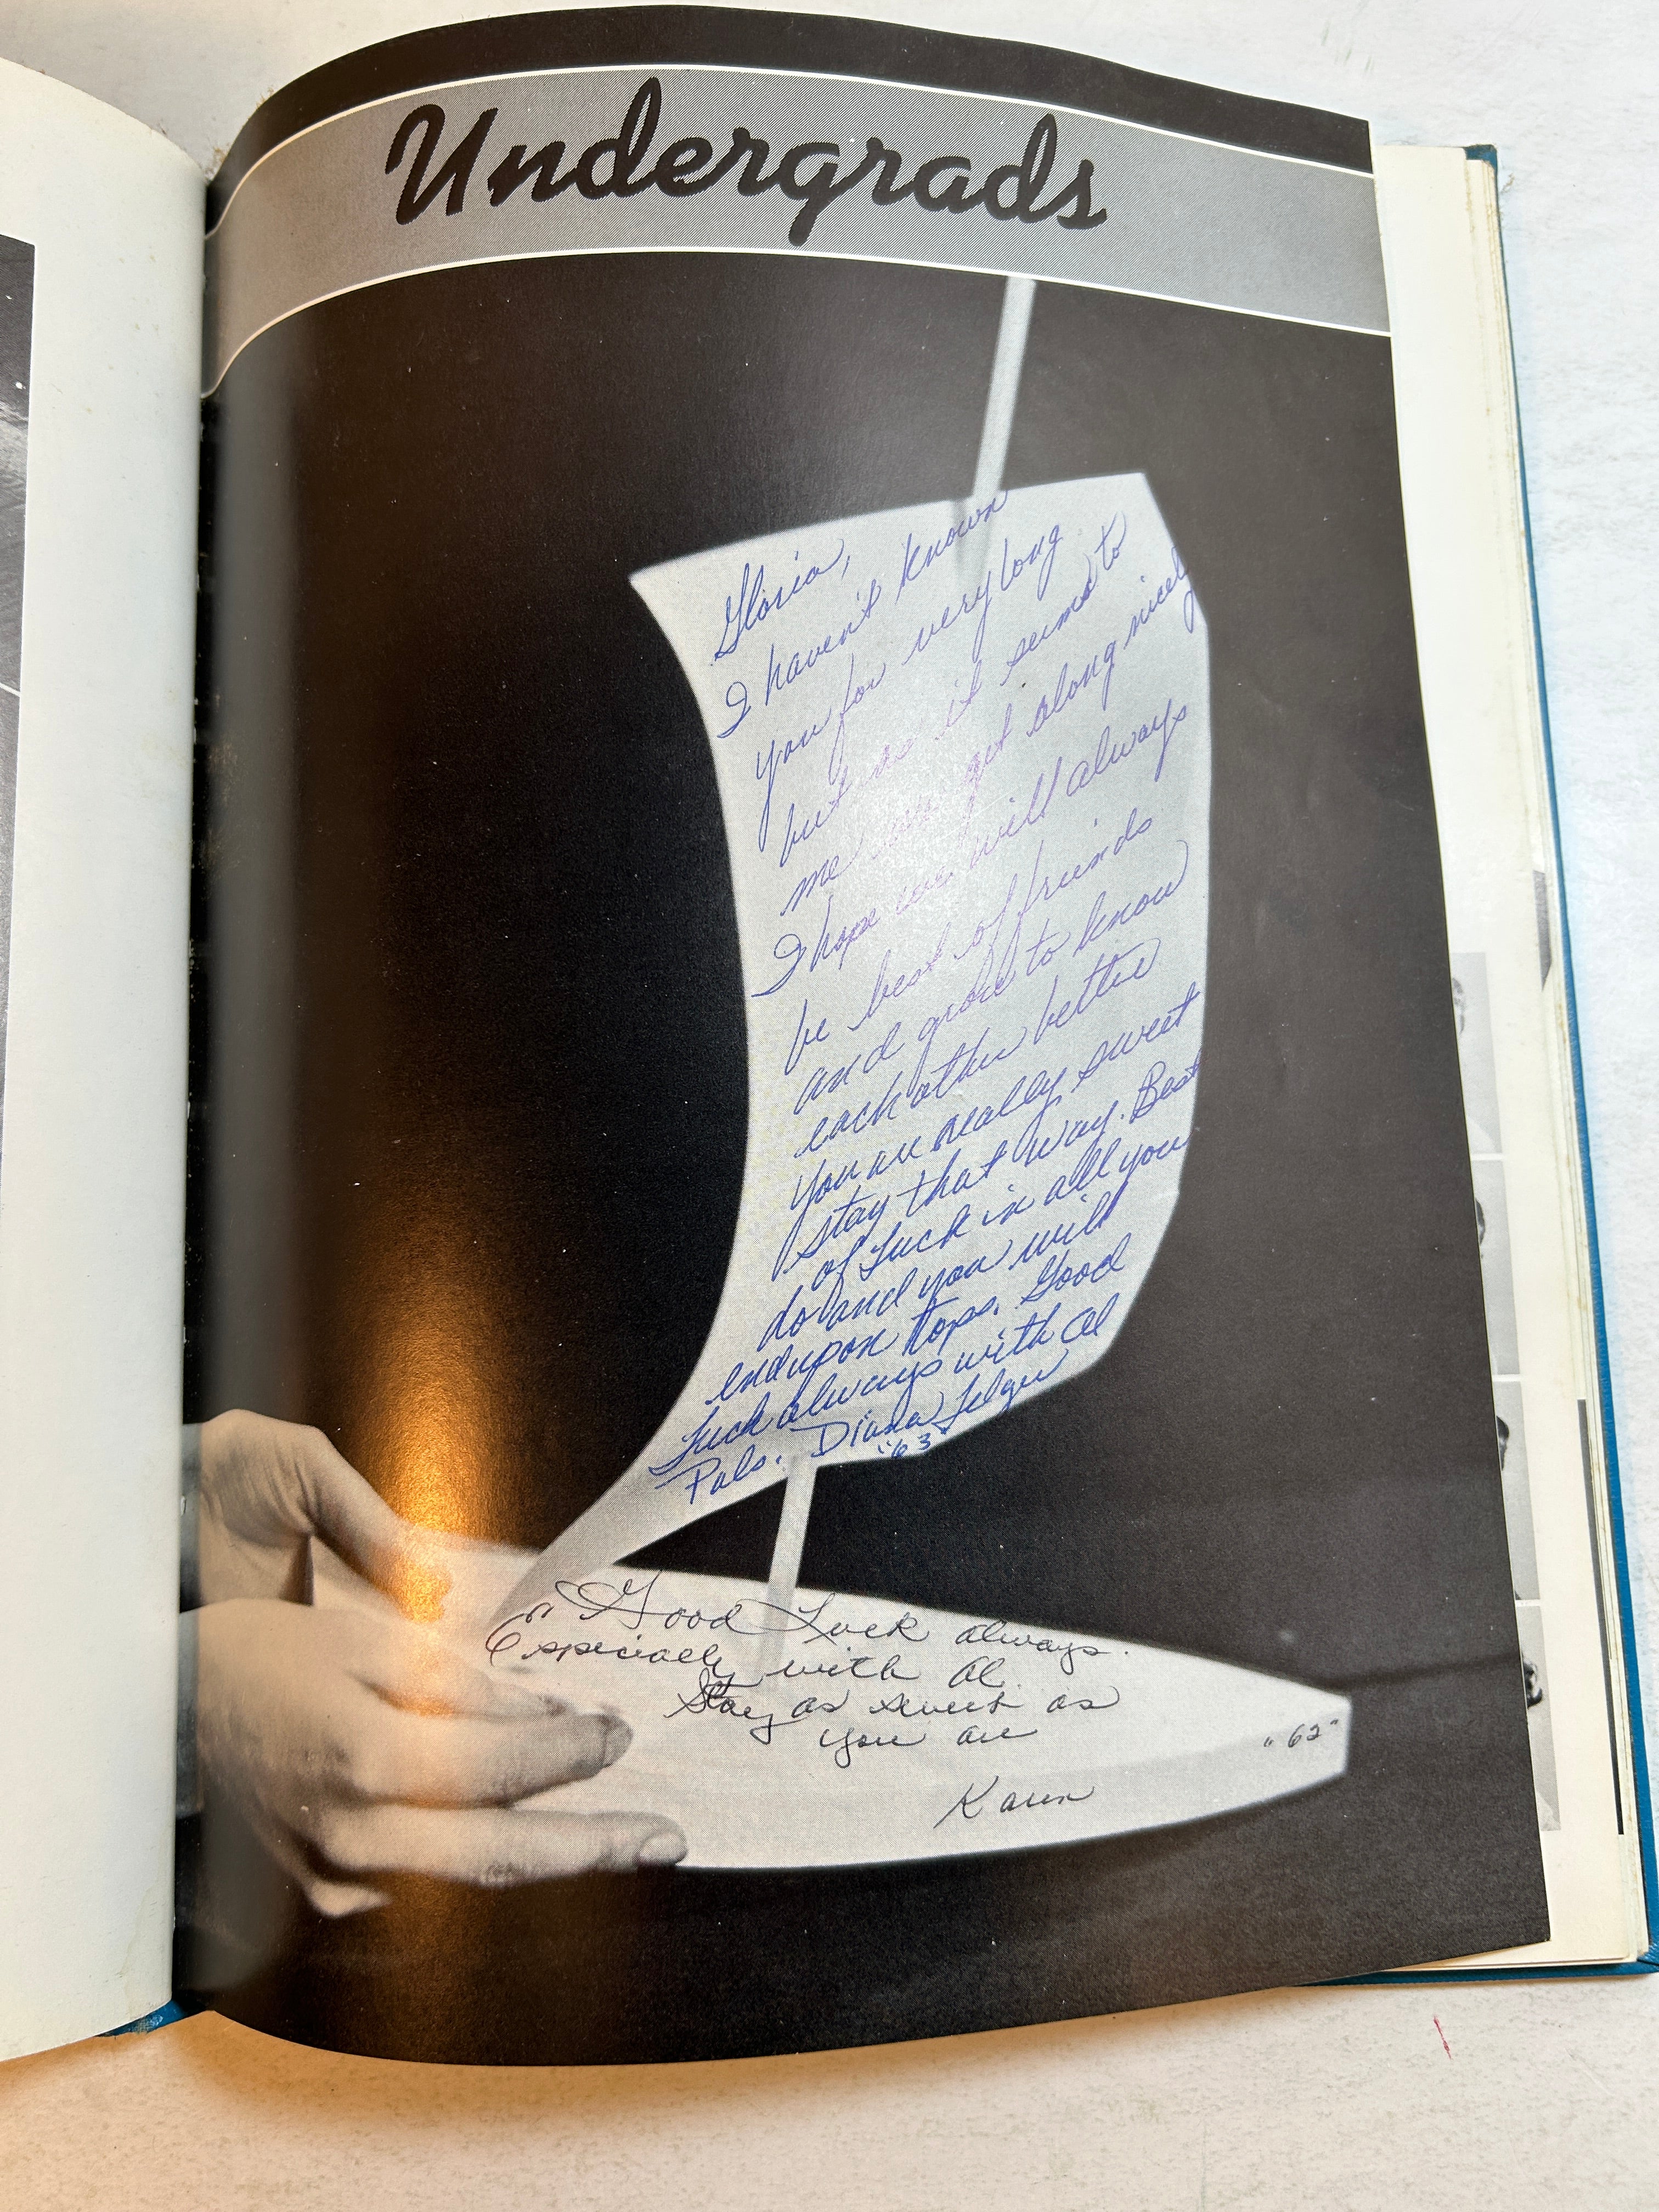 Undergrads
Gloria,
I haven't known
you for very long
but as it seems to
me we get along nicely
I hope we will always
be best of friends
and grow to know
each other better
You are really sweet
stay that way. Best
of luck in all you
do and you will
end upon tops. Good
Luck always with Al
Pals. Diana
"63"
Good Luck always.
Especially with Al.
Stay as sweet as
you are
"62"
Karen